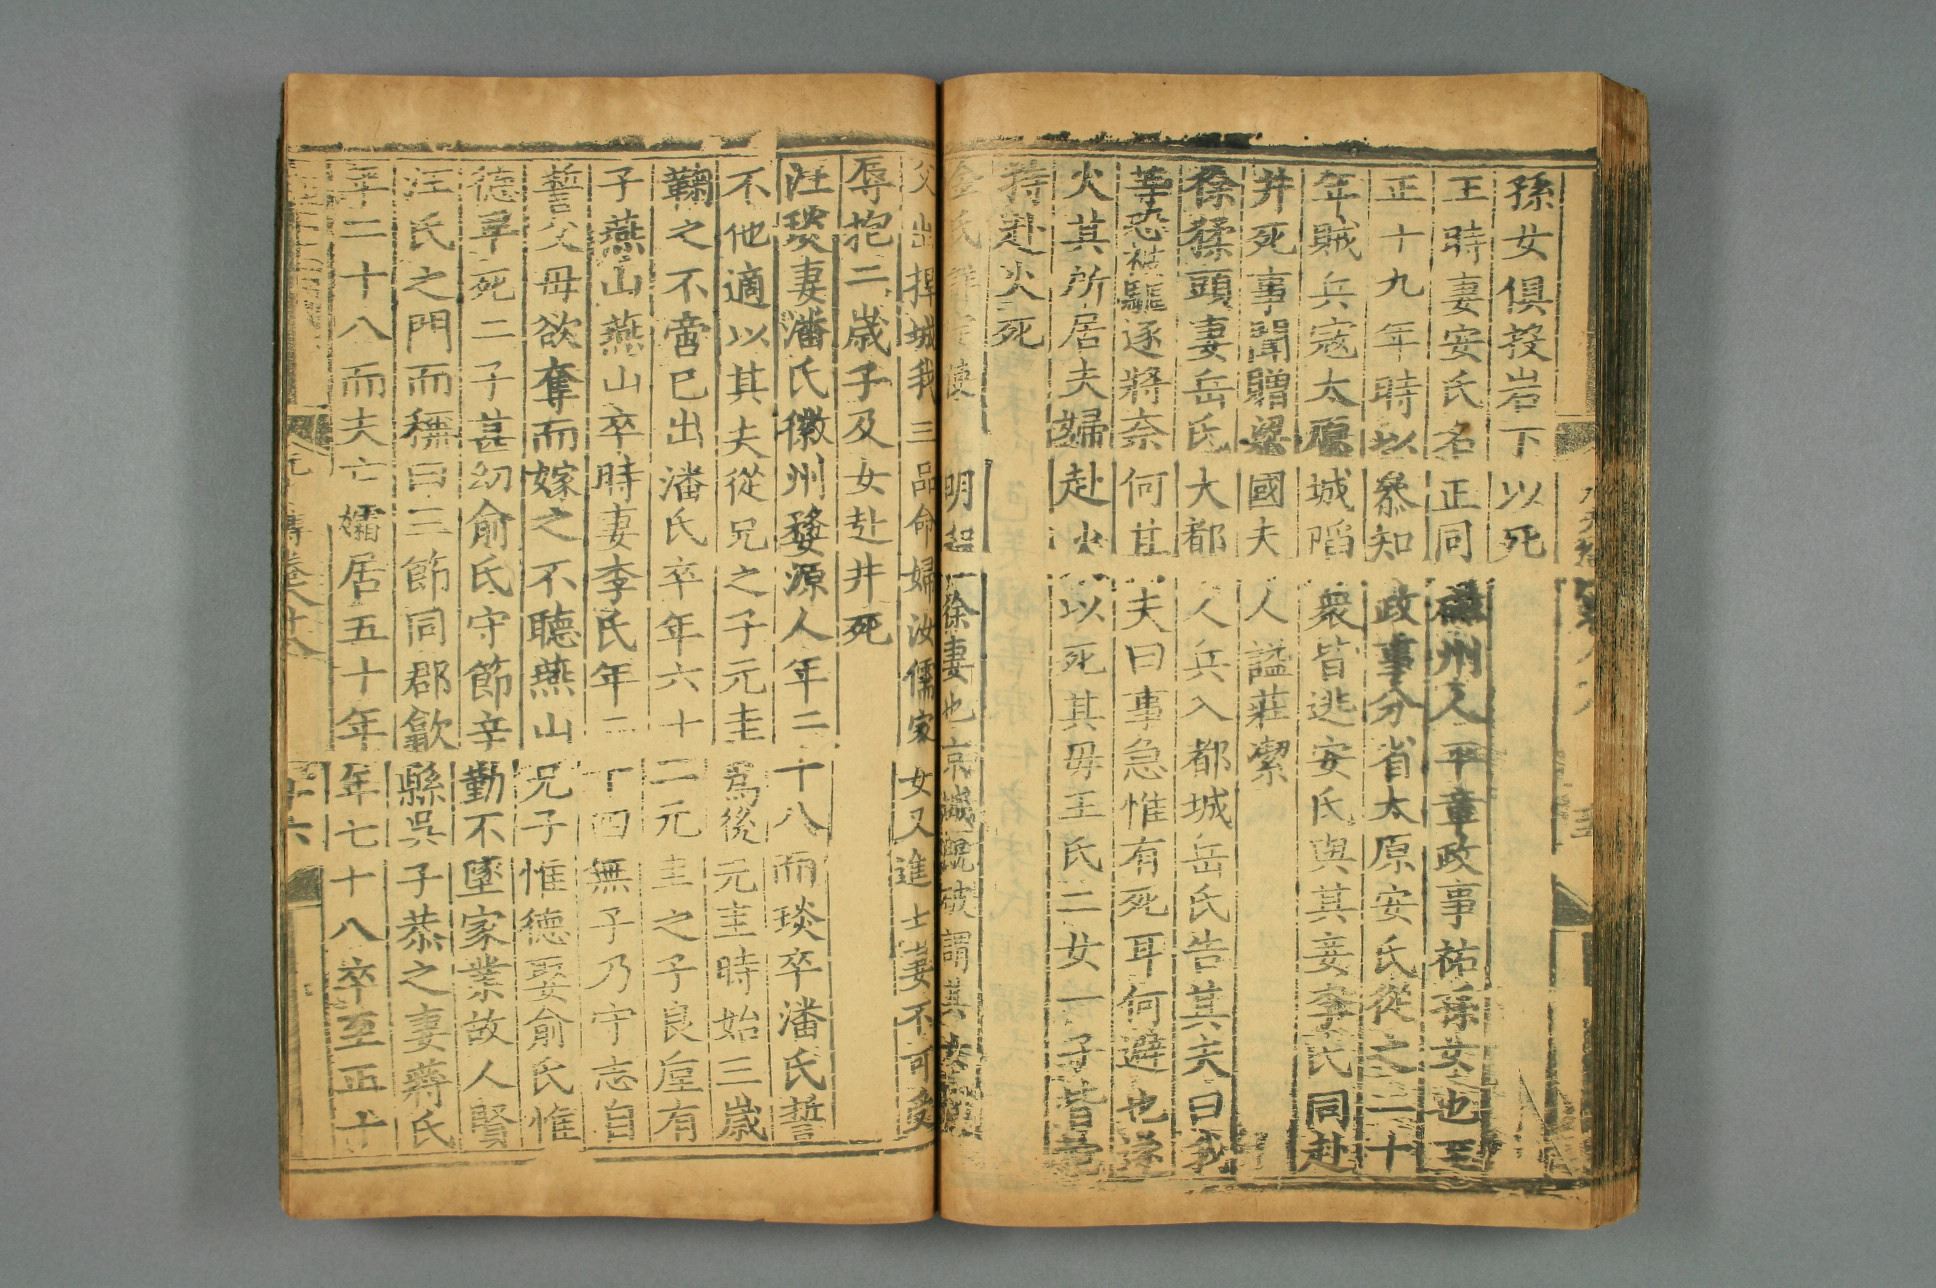 孫女俱投岩下以死
王時妻安氏名正同磁州人平章政事祐孫女也至
正十九年時以叅知政事分省太原安氏從之二十
年賊兵寇太原城陷衆皆逃安氏與其妾李氏同赴
井死事聞贈梁國夫人謚莊潔
徐猱頭妻岳氏大都人兵入都城岳氏告其夫曰我
等恐被驅逐將奈何其夫曰事急惟有死耳何避也遂
火其所居夫婦赴火以死其母王氏二女一子皆
持赴火死
金氏 明 徐妻也京城既破謂其
父出捍城我三品命婦汝儒家女又進士妻不可受
辱抱二歲子及女赴井死
汪琰妻潘氏徽州婺源人年二十八而琰卒潘氏誓
不他適以其夫從兄之子元圭爲後元圭時始三歲
鞠之不啻已出潘氏卒年六十二元圭之子良垕有
子燕山燕山卒時妻李氏年二十四無子乃守志自
誓父母欲奪而嫁之不聽燕山兄子惟德娶俞氏惟
德卒死二子甚幼俞氏守節辛勤不墜家業故人賢
汪氏之門而稱曰三節同郡歙縣吳子恭之妻蔣氏
年二十八而夫亡孀居五十年年七十八卒至正十
元 傳卷八十八 十六